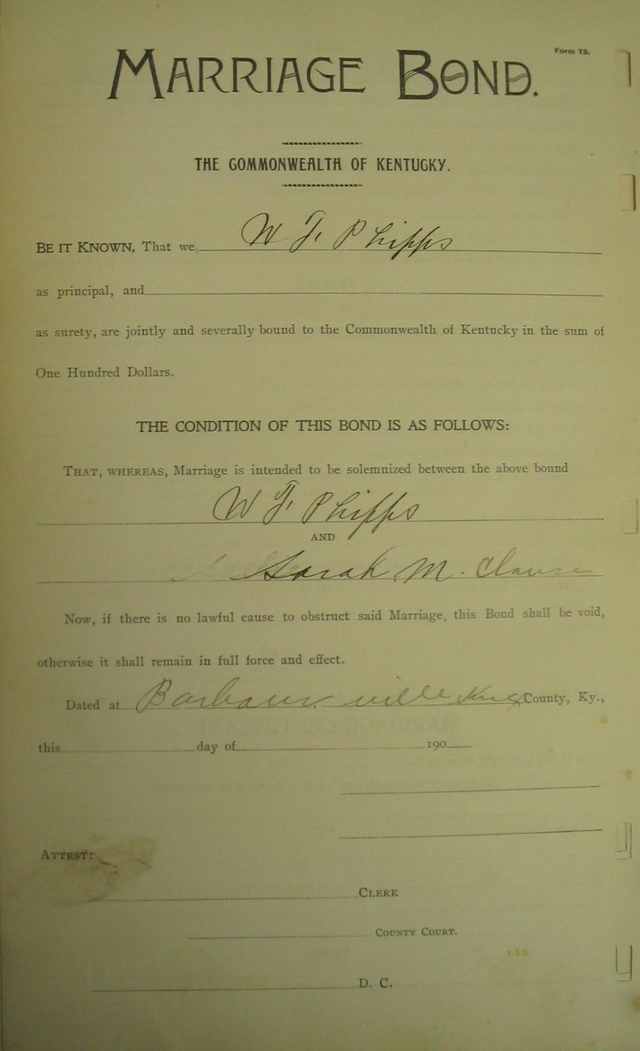 Form 73.
MARRIAGE BOND.
THE COMMONWEALTH OF KENTUCKY.
BE IT KNOWN, That we, W F Phipps
as principal, and
as surety, are jointly and severally bound to the Commonwealth of Kentucky in the sum of
One Hundred Dollars.
THE CONDITION OF THIS BOND IS AS FOLLOWS:
THAT, WHEREAS, Marriage is intended to be solemnized between the above bound
W F Phipps
AND
Sarah M.
Now, if there is no lawful cause to obstruct said Marriage, this Bond shall be void,
otherwise it shall remain in full force and effect.
Dated at Barbourville Knox County, Ky.,
this day of 190
ATTEST:
CLERK
COUNTY COURT.
D. C.